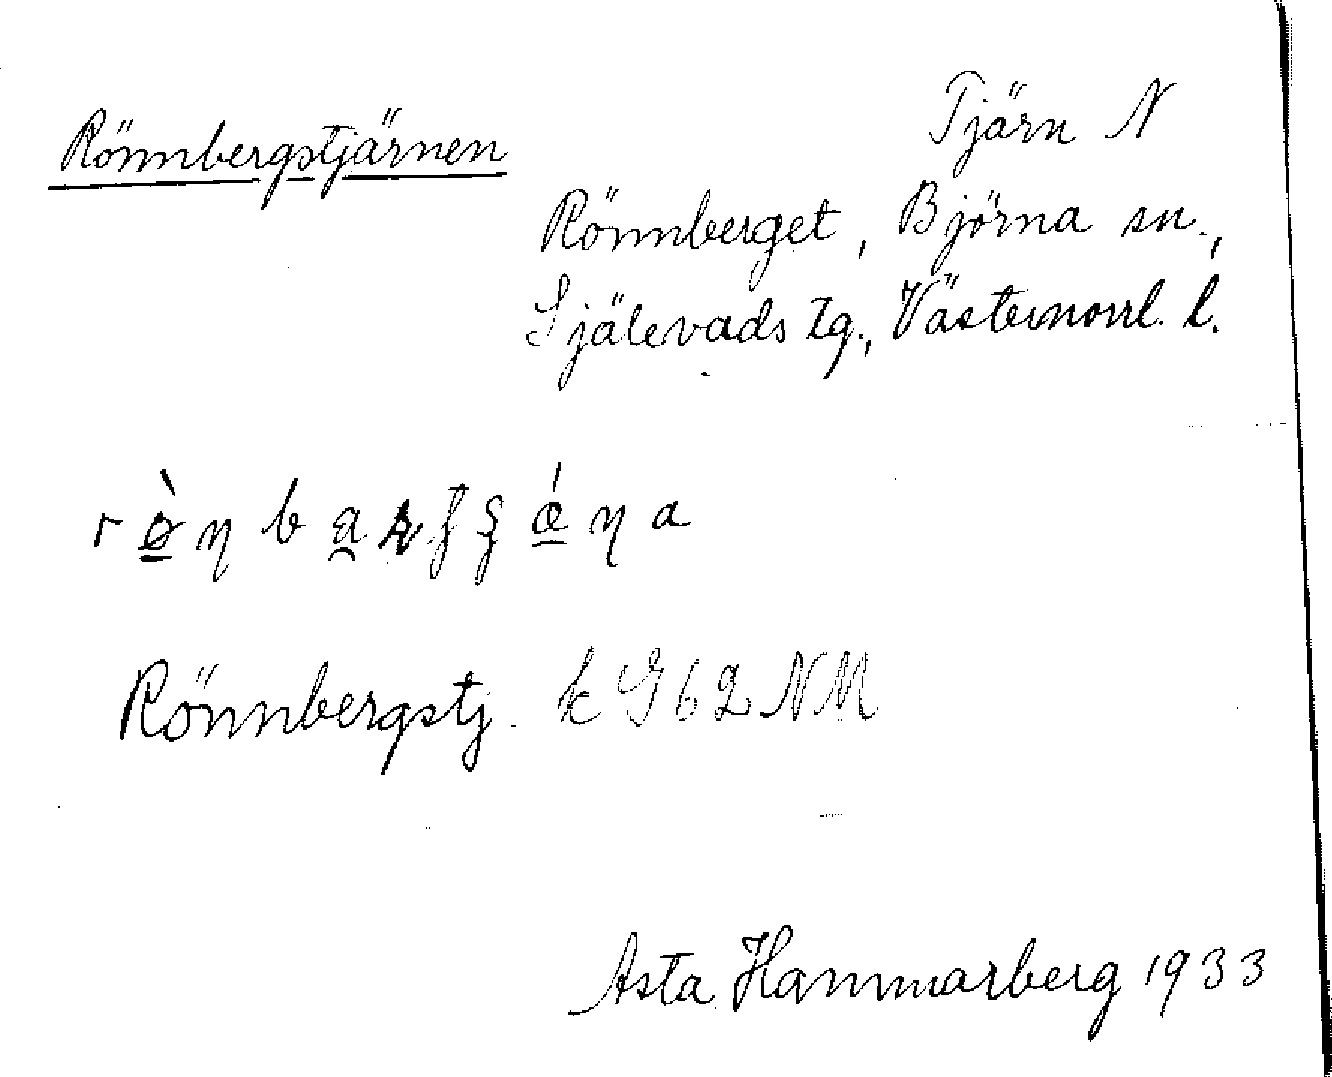 Rönnbergstjärnen
Tjärn N
Rönnberget, Björna sn.,
Själevads tg., Västernorrl. l.
Rönnbergstj. k G62NM
Asta Hammarberg 1933